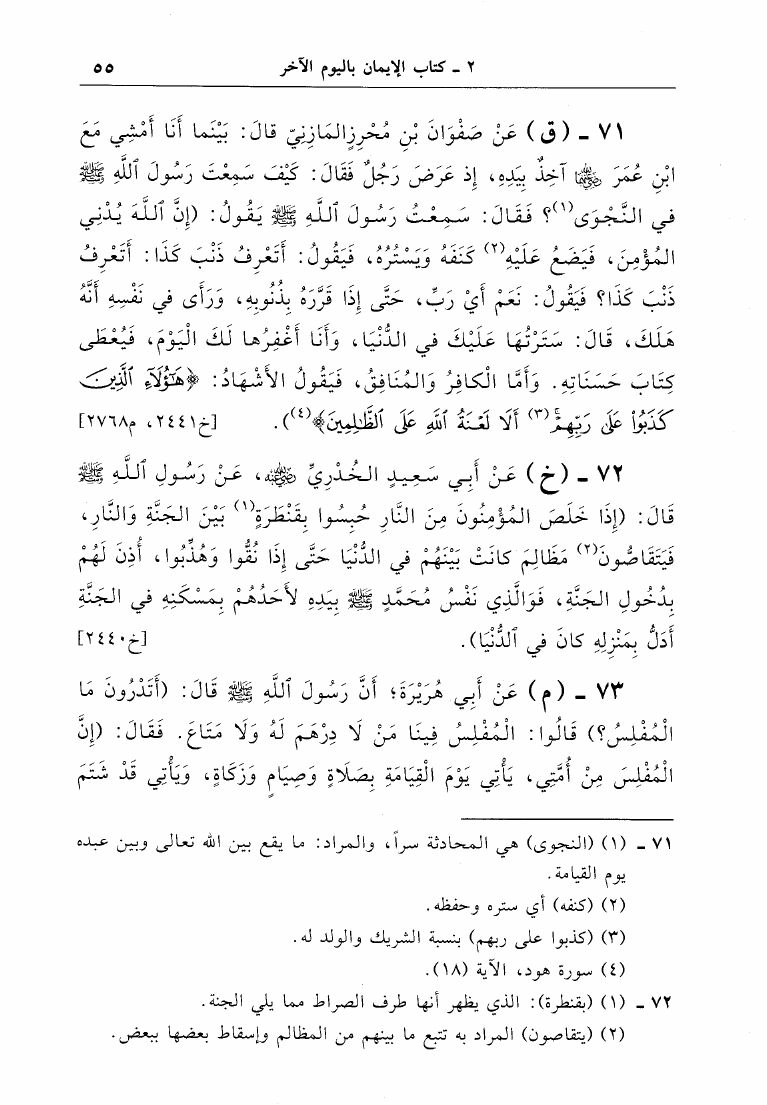 ٢ ـ كتاب الإيمان باليوم الآخر ٥٥
٧١ ـ (ق) عَنْ صَفْوَانَ بْنِ مُحْرِزِ المَازِنِيِّ قالَ: بَيْنَما أَنَا أَمْشِي مَعَ
ابْنِ عُمَرَ رضي الله عنهما آخِذٌ بِيَدِهِ، إِذ عَرَضَ رَجُلٌ فَقَالَ: كَيْفَ سَمِعْتَ رَسُولَ ٱللَّهِ ﷺ
في النَّجْوَى(١)؟ فَقَالَ: سَمِعْتُ رَسُولَ ٱللَّهِ ﷺ يَقُولُ: (إِنَّ ٱللَّهَ يُدْنِي
المُؤْمِنَ، فَيَضَعُ عَلَيْهِ(٢) كَنَفَهُ وَيَسْتُرُهُ، فَيَقُولُ: أَتَعْرِفُ ذَنْبَ كَذَا: أَتَعْرِفُ
ذَنْبَ كَذَا؟ فَيَقُولُ: نَعَمْ أَيْ رَبِّ، حَتَّى إِذَا قَرَّرَهُ بِذُنُوبِهِ، وَرَأَى في نَفْسِهِ أَنَّهُ
هَلَكَ، قَالَ: سَتَرْتُهَا عَلَيْكَ في الدُّنْيَا، وَأَنَا أَغْفِرُها لَكَ الْيَوْمَ، فَيُعْطَى
كِتَابَ حَسَنَاتِهِ. وَأَمَّا الْكافِرُ وَالمُنَافِقُ، فَيَقُولُ الأَشْهَادُ: ﴿هَٰٓؤُلَآءِ ٱلَّذِينَ
كَذَبُواْ عَلَىٰ رَبِّهِمْۚ(٣) أَلَا لَعْنَةُ ٱللَّهِ عَلَى ٱلظَّٰلِمِينَ﴾(٤)). [خ٢٤٤١، م٢٧٦٨]
٧٢ ـ (خ) عَنْ أَبِي سَعِيدٍ الخُدْرِيِّ رضي الله عنه، عَنْ رَسُولِ ٱللَّهِ ﷺ
قَالَ: (إِذَا خَلَصَ المُؤْمِنُونَ مِنَ النَّارِ حُبِسُوا بِقَنْطَرَةٍ(١) بَيْنَ الجَنَّةِ وَالنَّارِ،
فَيَتَقَاصُّونَ(٢) مَظَالِمَ كانَتْ بَيْنَهُمْ في الدُّنْيَا حَتَّى إِذَا نُقُّوا وَهُذِّبُوا، أُذِنَ لَهُمْ
بِدُخُولِ الجَنَّةِ، فَوَالَّذِي نَفْسُ مُحَمَّدٍ ﷺ بِيَدِهِ لأَحَدُهُمْ بِمَسْكَنِهِ في الجَنَّةِ
أَدَلُّ بِمَنْزِلِهِ كانَ في ٱلدُّنْيَا). [خ٢٤٤٠]
٧٣ ـ (م) عَنْ أَبِي هُرَيْرَةَ؛ أَنَّ رَسُولَ ٱللَّهِ ﷺ قَالَ: (أَتَدْرُونَ مَا
الْمُفْلِسُ؟) قَالُوا: الْمُفْلِسُ فِينَا مَنْ لَا دِرْهَمَ لَهُ وَلَا مَتَاعَ. فَقَالَ: (إِنَّ
الْمُفْلِسَ مِنْ أُمَّتِي، يَأْتِي يَوْمَ الْقِيَامَةِ بِصَلَاةٍ وَصِيَامٍ وَزَكَاةٍ، وَيَأْتِي قَدْ شَتَمَ
٧١ ـ (١) (النجوى) هي المحادثة سراً، والمراد: ما يقع بين الله تعالى وبين عبده
يوم القيامة.
(٢) (كنفه) أي ستره وحفظه.
(٣) (كذبوا على ربهم) بنسبة الشريك والولد له.
(٤) سورة هود، الآية (١٨).
٧٢ ـ (١) (بقنطرة): الذي يظهر أنها طرف الصراط مما يلي الجنة.
(٢) (يتقاصون) المراد به تتبع ما بينهم من المظالم وإسقاط بعضها ببعض.